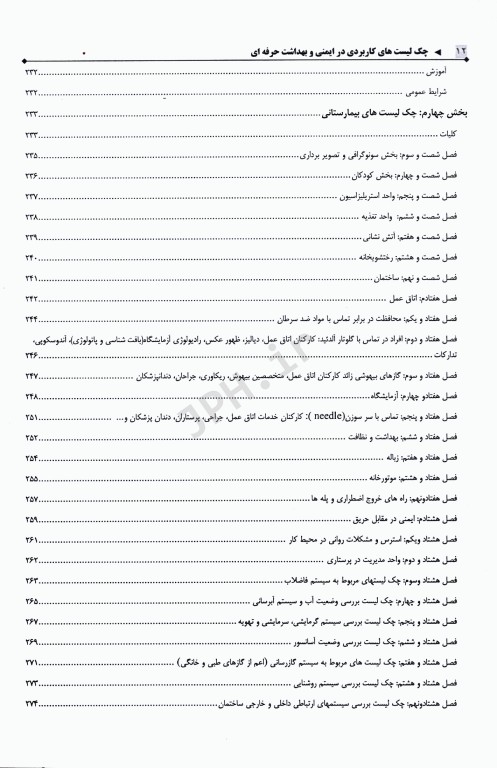 ۱۲ ◄ چک لیست های کاربردی در ایمنی و بهداشت حرفه ای
آموزش ................ ۲۳۲
شرایط عمومی ................ ۲۳۲
بخش چهارم: چک لیست های بیمارستانی ................ ۲۳۳
کلیات ................ ۲۳۳
فصل شصت و سوم: بخش سونوگرافی و تصویر برداری ................ ۲۳۵
فصل شصت و چهارم: بخش کودکان ................ ۲۳۶
فصل شصت و پنجم: واحد استریلیزاسیون ................ ۲۳۷
فصل شصت و ششم: واحد تغذیه ................ ۲۳۸
فصل شصت و هفتم: آتش نشانی ................ ۲۳۹
فصل شصت و هشتم: رختشویخانه ................ ۲۴۰
فصل شصت و نهم: ساختمان ................ ۲۴۱
فصل هفتادم: اتاق عمل ................ ۲۴۲
فصل هفتاد و یکم: محافظت در برابر تماس با مواد ضد سرطان ................ ۲۴۴
فصل هفتاد و دوم: افراد در تماس با گلوتار آلدئید: کارکنان اتاق عمل، دیالیز، ظهور عکس، رادیولوژی آزمایشگاه(بافت شناسی و پاتولوژی)، آندوسکوپی،
تدارکات ................ ۲۴۶
فصل هفتاد و سوم: گازهای بیهوشی زائد کارکنان اتاق عمل، متخصصین بیهوش، ریکاوری، جراحان، دندانپزشکان ................ ۲۴۷
فصل هفتادو چهارم: آزمایشگاه ................ ۲۴۸
فصل هفتاد و پنجم: تماس با سر سوزن(needle ): کارکنان خدمات اتاق عمل، جراحی، پرستاران، دندان پزشکان و... ................ ۲۵۱
فصل هفتاد و ششم: بهداشت و نظافت ................ ۲۵۲
فصل هفتاد و هفتم: زباله ................ ۲۵۴
فصل هفتاد و هشتم: موتورخانه ................ ۲۵۵
فصل هفتادونهم: راه های خروج اضطراری و پله ها ................ ۲۵۷
فصل هشتادم: ایمنی در مقابل حریق ................ ۲۵۹
فصل هشتاد ویکم: استرس و مشکلات روانی در محیط کار ................ ۲۶۱
فصل هشتاد و دوم: واحد مدیریت در پرستاری ................ ۲۶۲
فصل هشتاد وسوم: چک لیستهای مربوط به سیستم فاضلاب ................ ۲۶۳
فصل هشتاد و چهارم: چک لیست بررسی وضعیت آب و سیستم آبرسانی ................ ۲۶۵
فصل هشتاد و پنجم: چک لیست بررسی سیستم گرمایشی، سرمایشی و تهویه ................ ۲۶۷
فصل هشتاد و ششم: چک لیست بررسی وضعیت آسانسور ................ ۲۶۹
فصل هشتاد و هفتم: چک لیست های مربوط به سیستم گازرسانی (اعم از گازهای طبی و خانگی) ................ ۲۷۱
فصل هشتاد و هشتم: چک لیست بررسی سیستم روشنایی ................ ۲۷۳
فصل هشتادونهم: چک لیست بررسی سیستمهای ارتباطی داخلی و خارجی ساختمان ................ ۲۷۴
JPH.ir